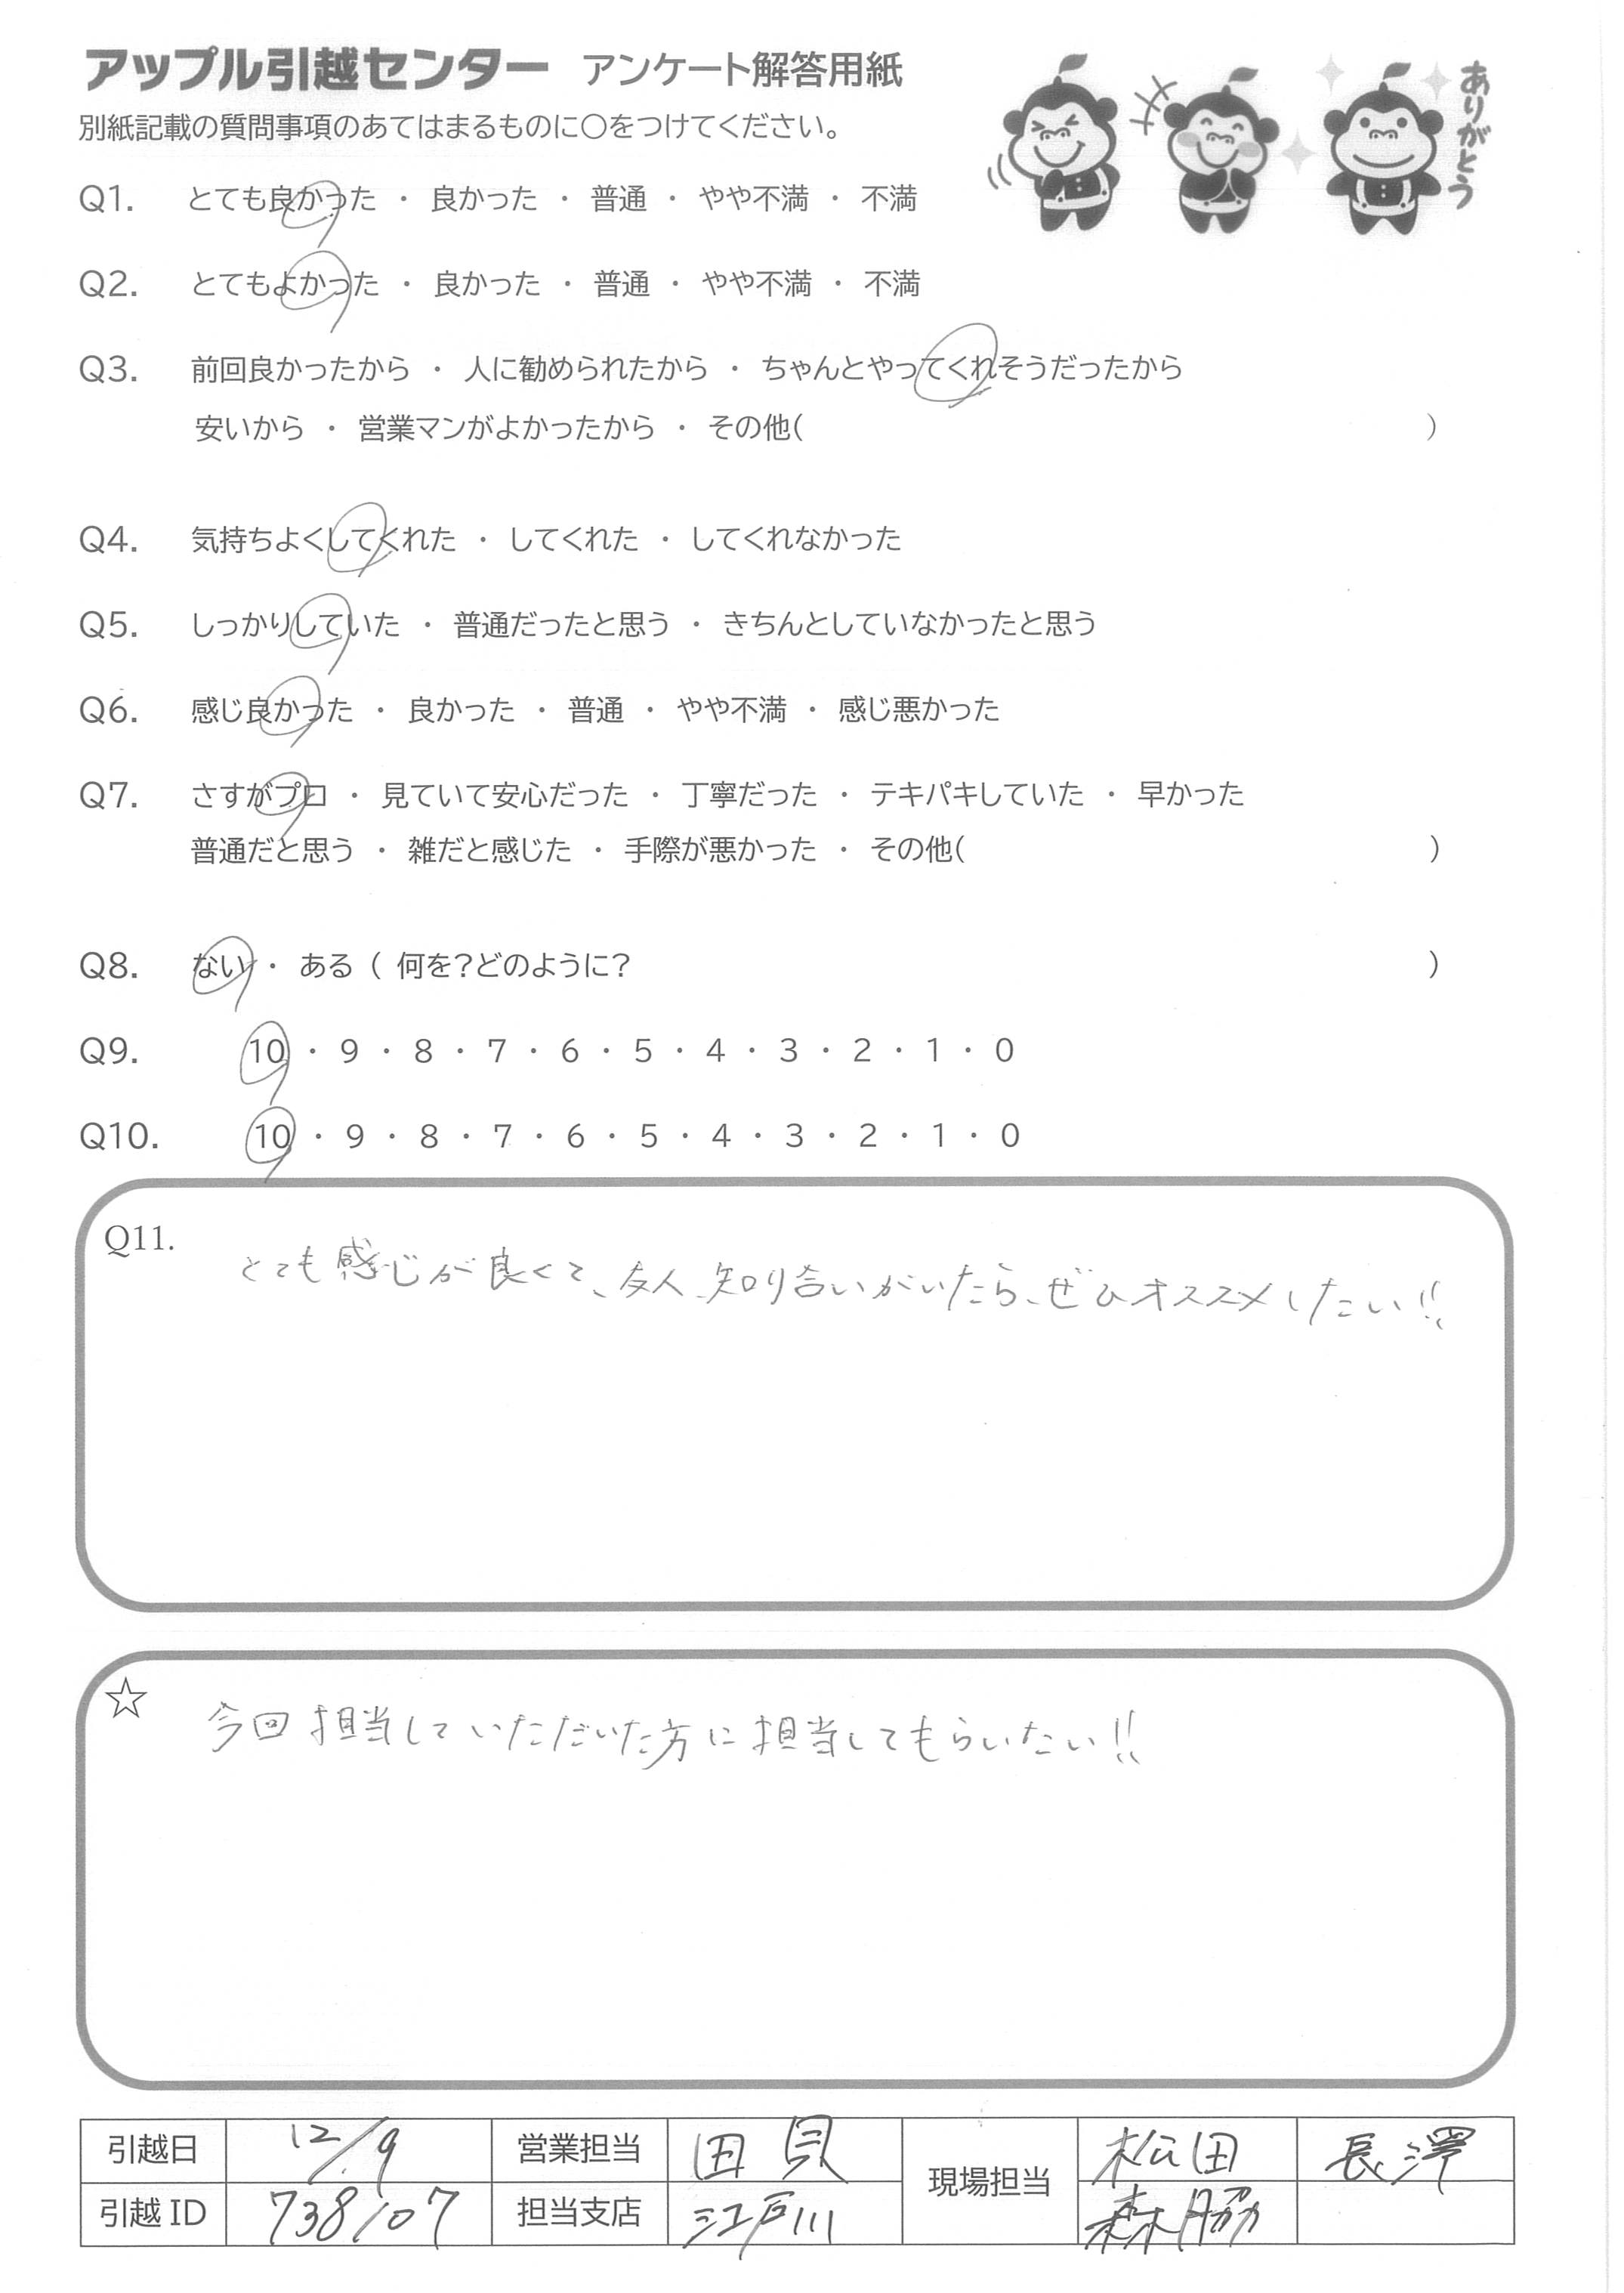 アップル引越センター アンケート解答用紙
別紙記載の質問事項のあてはまるものに〇をつけてください。
ありがとう
Q1. とても良かった ・ 良かった ・ 普通 ・ やや不満 ・ 不満
Q2. とてもよかった ・ 良かった ・ 普通 ・ やや不満 ・ 不満
Q3. 前回良かったから ・ 人に勧められたから ・ ちゃんとやってくれそうだったから
安いから ・ 営業マンがよかったから ・ その他( )
Q4. 気持ちよくしてくれた ・ してくれた ・ してくれなかった
Q5. しっかりしていた ・ 普通だったと思う ・ きちんとしていなかったと思う
Q6. 感じ良かった ・ 良かった ・ 普通 ・ やや不満 ・ 感じ悪かった
Q7. さすがプロ ・ 見ていて安心だった ・ 丁寧だった ・ テキパキしていた ・ 早かった
普通だと思う ・ 雑だと感じた ・ 手際が悪かった ・ その他( )
Q8. ない ・ ある ( 何を?どのように? )
Q9. 10 ・ 9 ・ 8 ・ 7 ・ 6 ・ 5 ・ 4 ・ 3 ・ 2 ・ 1 ・ 0
Q10. 10 ・ 9 ・ 8 ・ 7 ・ 6 ・ 5 ・ 4 ・ 3 ・ 2 ・ 1 ・ 0
Q11. とても感じが良くて、友人、知り合いがいたら、ぜひオススメしたい!!
☆ 今回担当していただいた方に担当してもらいたい!!
引越日 12/9 営業担当 田貝 現場担当 松田 長澤
引越ID 738107 担当支店 江戸川 森脇